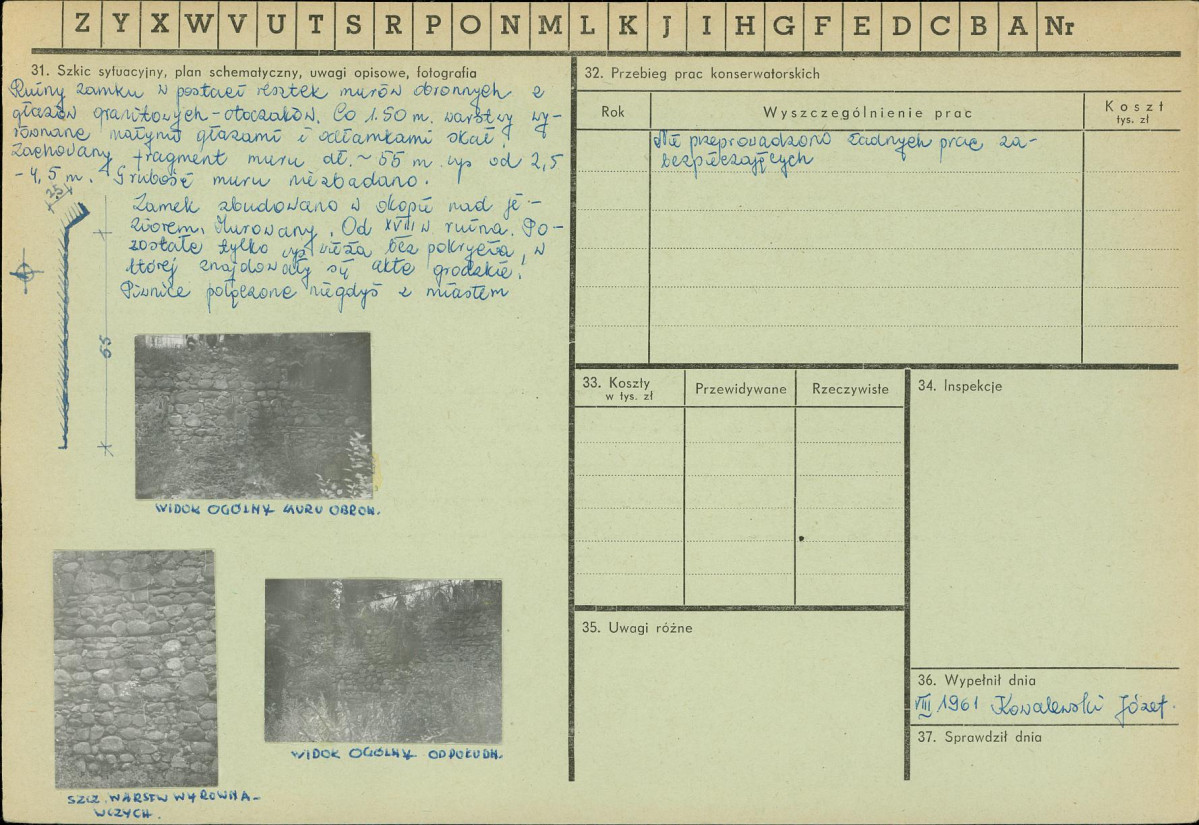 Z Y X W V U T S R P O N M L K J I H G F E D C B A Nr
31. Szkic sytuacyjny, plan schematyczny, uwagi opisowe, fotografia
Ruiny zamku w postaci resztek murów obronnych z
głazów granitowych-otoczaków. Co 1.50 m. warstwy wy-
równane małymi głazami i odłamkami skał.
Zachowany fragment muru dł. ~ 55 m. wys od 2,5
- 4,5 m. Grubość muru niezbadano.
Zamek zbudowano w okopie nad je-
ziorem. Murowany. Od XVIII w ruina. Po-
zostałe tylko wieża bez pokrycia, w
której znajdowały się akta grodzkie.
Piwnice połączone niegdyś z miastem
25
55
WIDOK OGÓLNY MURU OBRON.
SZCZ. WARSTW WYRÓWNA-
WCZYCH.
WIDOK OGÓLNY OD POŁUDN.
32. Przebieg prac konserwatorskich
Rok
Wyszczególnienie prac
Koszt
tys. zł
Nie przeprowadzono żadnych prac za-
bezpieczających
33. Koszty
w tys. zł
Przewidywane
Rzeczywiste
34. Inspekcje
35. Uwagi różne
36. Wypełnił dnia
VIII 1961 Kowalewski Józef.
37. Sprawdził dnia